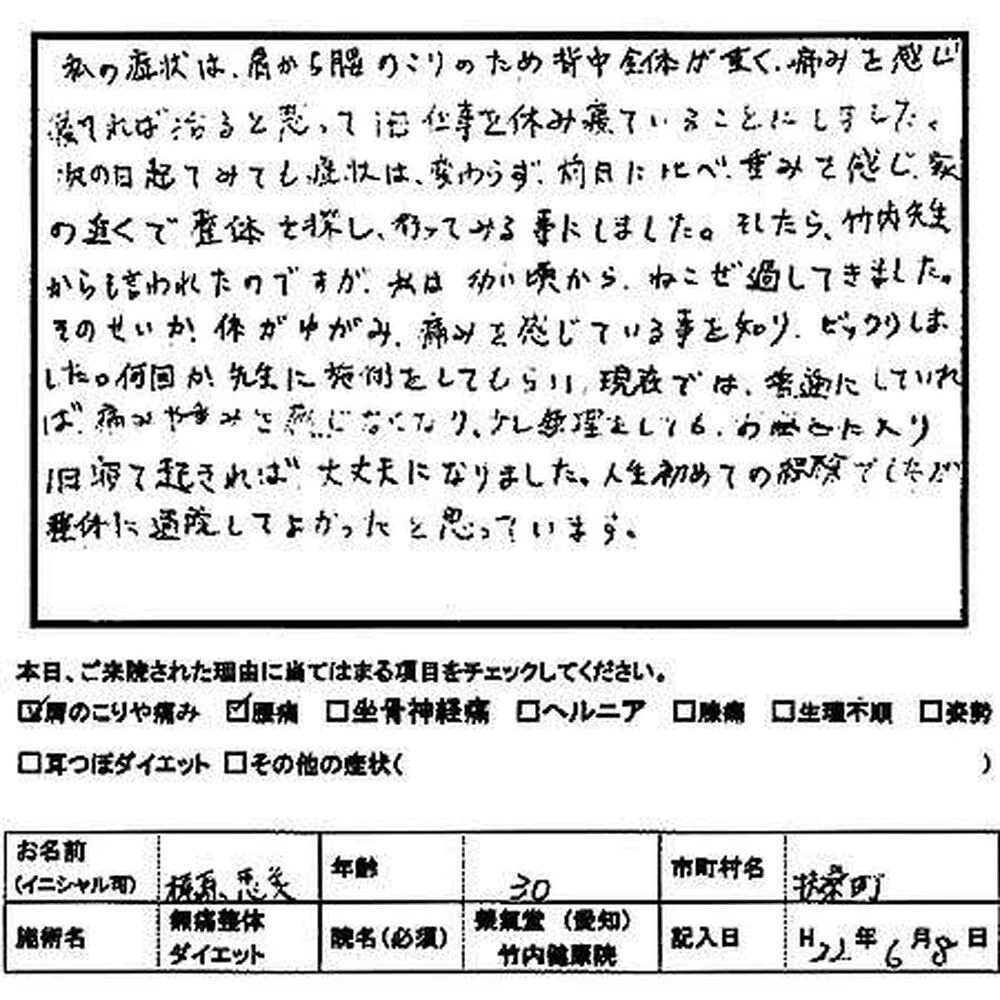 私の症状は、肩から腰のこりのため背中全体が重く、痛みを感じ
寝てれば治ると思って1日仕事を休み寝ていることにしました。
次の日起きてみても症状は、変わらず、前日に比べ、重みを感じ、家
の近くで整体を探し、行ってみる事にしました。そしたら、竹内先生
からも言われたのですが、私は幼い頃から、ねこぜ過してきました。
そのせいか、体がゆがみ、痛みを感じている事を知り、ビックリしま
した。何回か先生に施術をしてもらい、現在では、普通にしていれ
ば、痛みや重みを感じなくなり、少し無理をしても、お風呂に入り
1日寝て起きれば、大丈夫になりました。人生初めての経験でしたが
整体に通院してよかったと思っています。
本日、ご来院された理由に当てはまる項目をチェックしてください。
☑肩のこりや痛み ☑腰痛 □坐骨神経痛 □ヘルニア □膝痛 □生理不順 □姿勢
□耳つぼダイエット □その他の症状( )
お名前 年齢 30 市町村名 扶桑町
(イニシャル可) 恵美
施術名 無痛整体 ダイエット 院名(必須) 薬氣堂(愛知) 竹内健康院 記入日 H22年6月8日